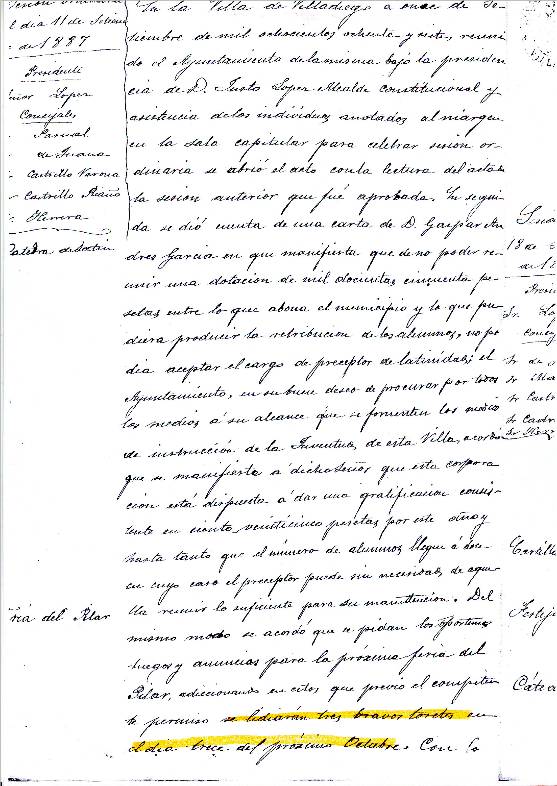 l dia 11 de Setiem
de 1887
Presidente
eñor Lopez
Concejales
Pascual
Castrillo Varona
Castrillo Riaño
Herrera
Catedra de Latin
En la Villa de Villadiego a once de Se-
tiembre de mil ochocientos ochenta y siete, reuni
do el Ayuntamiento de la misma bajo la presiden
cia de D. Justo Lopez Alcalde Constitucional y
asistencia de los individuos anotados al margen
en la sala capitular para celebrar sesion or
dinaria se abrió el acto con la lectura del acta de
la sesion anterior que fué aprobada. En segui
da se dió cuenta de una carta de D. Gaspar An
dres Garcia en que manifiesta que de no poder re
unir una dotacion de mil docientas cincuenta pe
setas entre lo que abona el municipio y lo que pu
diera producir la retribucion de los alumnos, no po
dia aceptar el cargo de preceptor de latinidad; el
Ayuntamiento, en su buen deseo de procurar por todos
los medios á su alcance que se fomenten los medios
de instruccion de la Juventud, de esta Villa, acordó
que se manifieste á dicho Señor que esta corpora
cion está dispuesta á dar una gratificacion consis-
tente en ciento veinticinco pesetas por este año y
hasta tanto que el número de alumnos llegue á doce
en cuyo caso el preceptor puede sin necesidad de aque
lla reunir lo suficiente para su manutencion. Del
mismo modo se acordó que se pidan los oportunos
fuegos y anuncios para la próxima feria del
Pilar, adiccionando en estos que previo el competen
te permiso se lidiarán tres bravos toretes en
el dia trece del próximo Octubre. Con lo
ria del Pilar
18 de
de 18
Presi
Sr. Lo
Conce
Sr de
Sr Castr
Sr Castr
Festej
Cáted